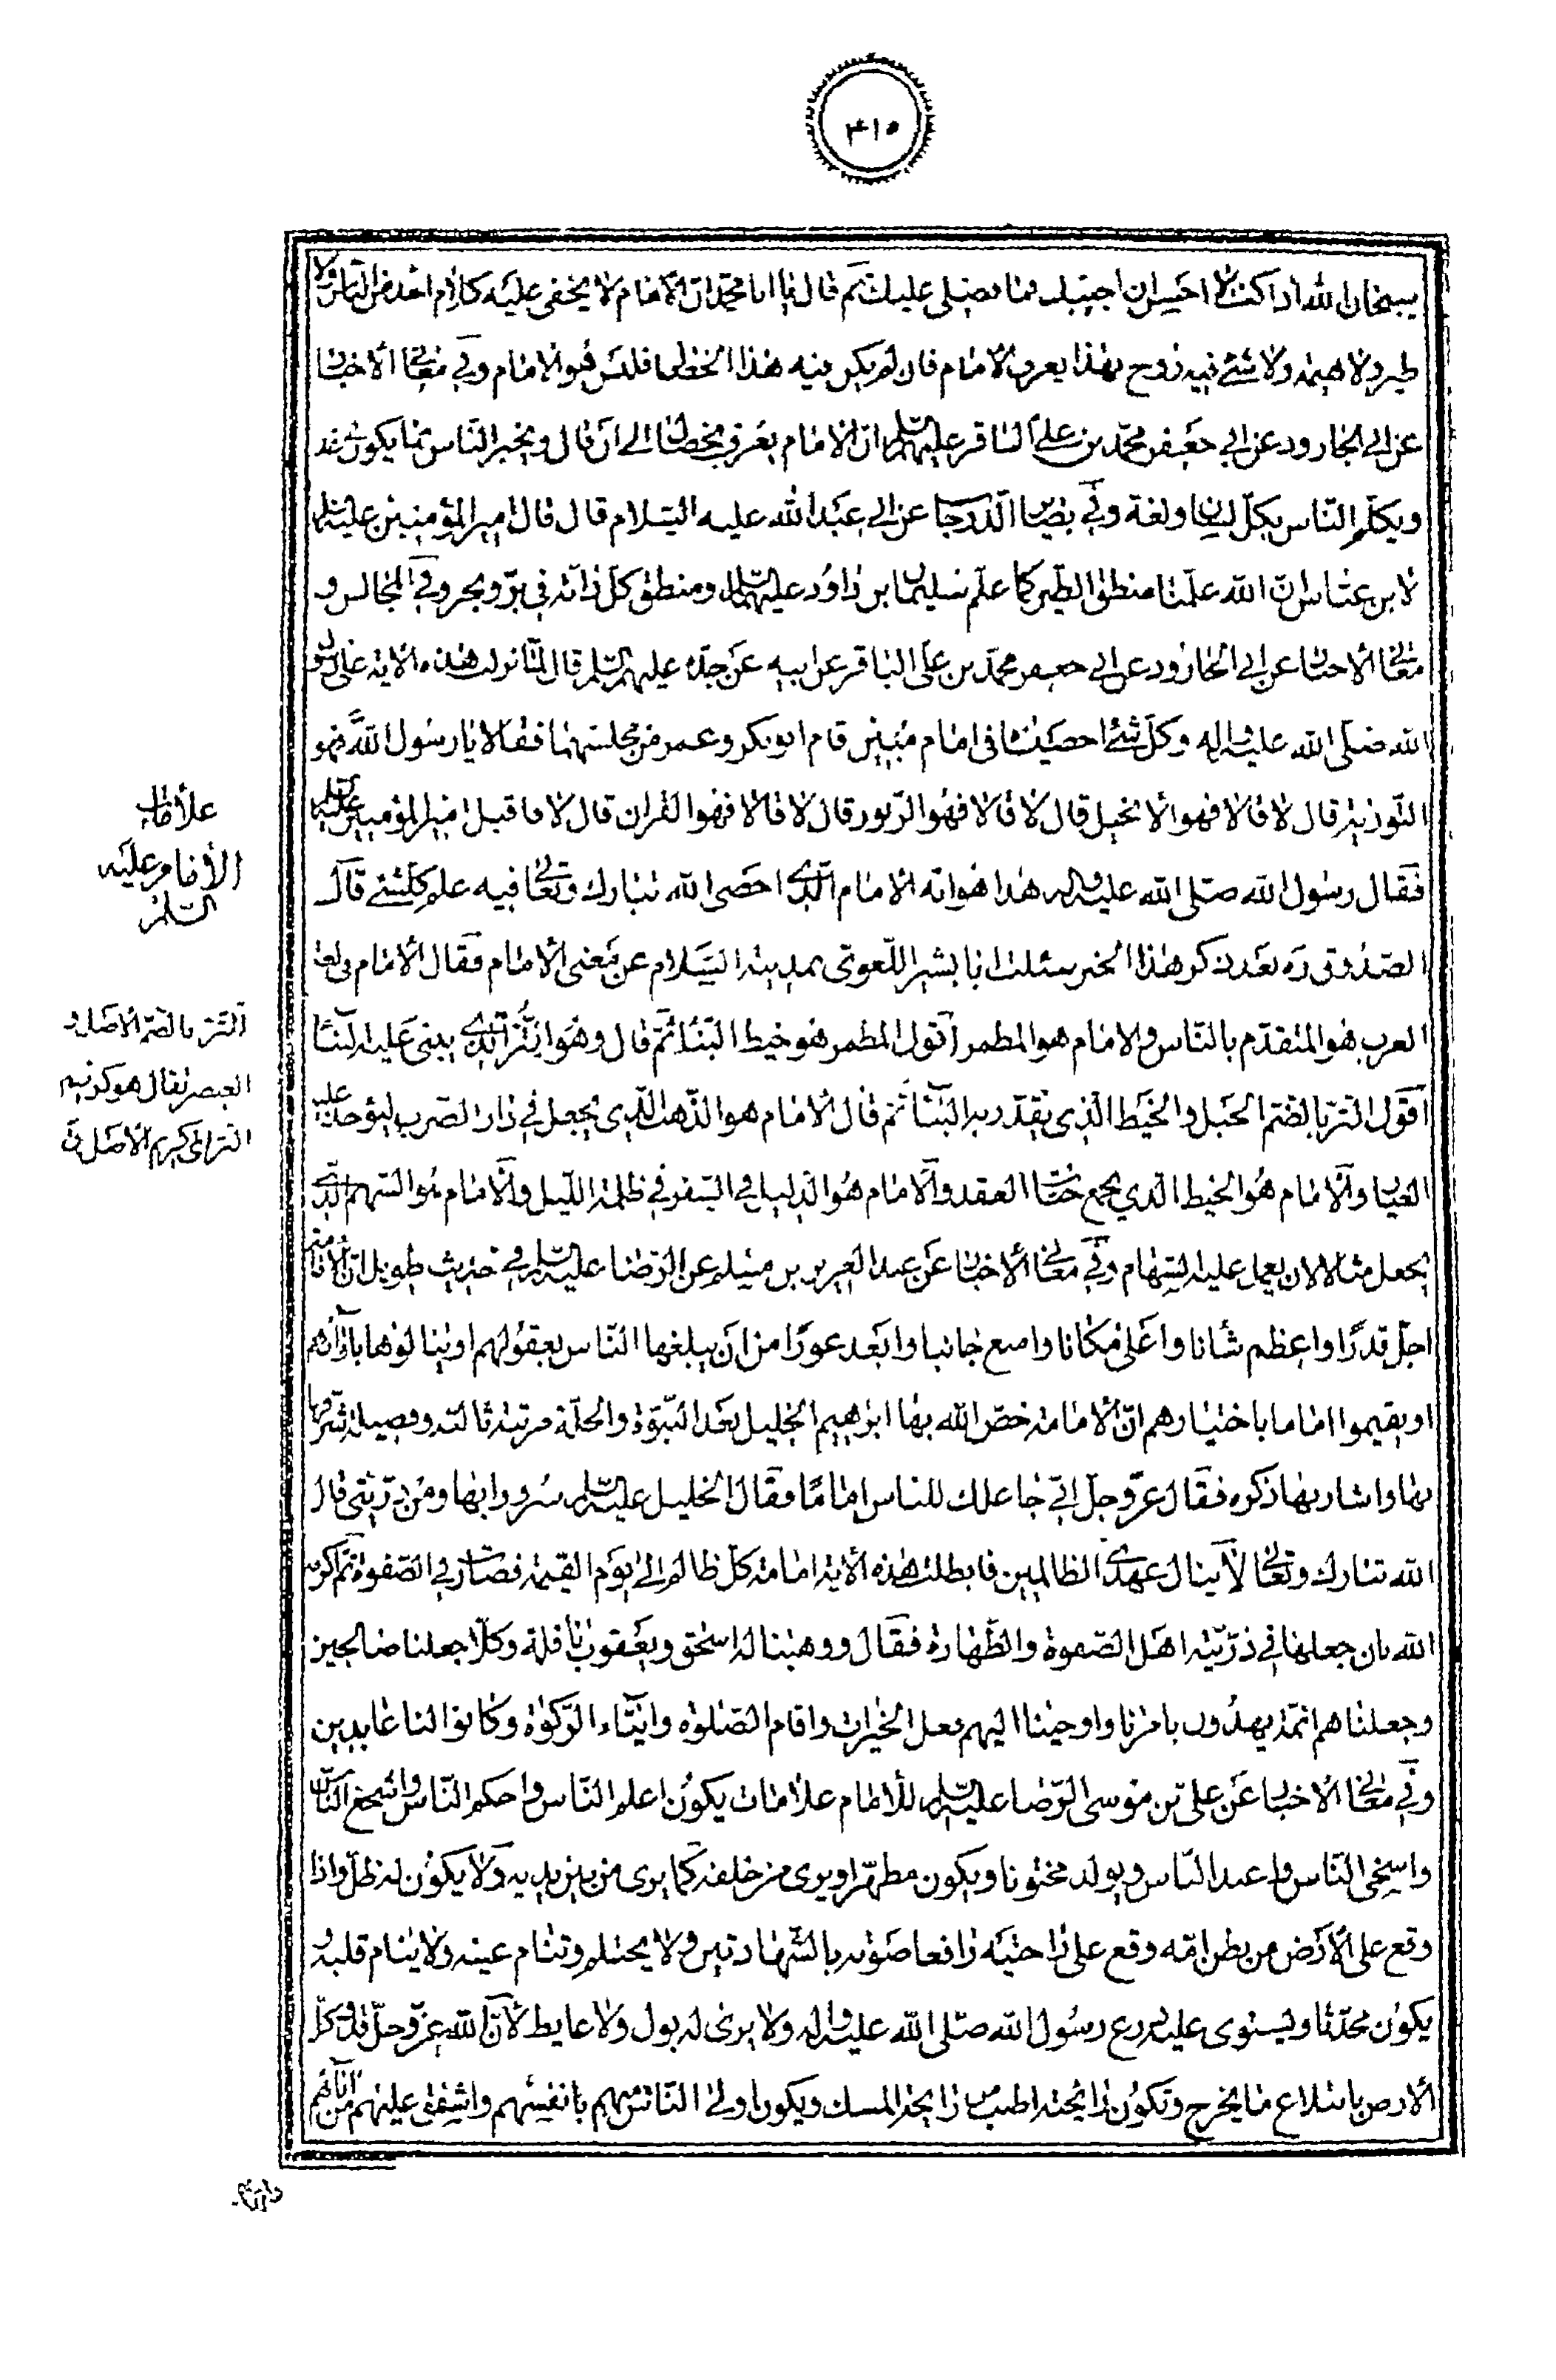 ٣١٥
سبحان الله اذا كنت لا احسن ان اجيبك فما فضلى عليك ثم قال يا ابا محمد ان الامام لا يخفى عليه كلام احد من الناس ولا
طير ولا بهيمة ولا شئ فيه روح بهذا يعرف الامام فان لم يكن فيه هذا الخصال فليس هو الامام وفي معاني الاخبار
عن ابي الجارود عن ابي جعفر محمد بن علي الباقر عليهم السلم ان الامام يعرف بخصال الى ان قال ويخبر الناس بما يكون في غد
ويكلم الناس بكل لسان ولغة وفي بصائر الدرجات عن ابي عبد الله عليه السلام قال قال امير المؤمنين عليه السلم
لابن عباس ان الله علمنا منطق الطير كما علم سليمان بن داود عليهما السلم ومنطق كل دابة في بر وبحر وفي المجالس و
معاني الاخبار عن ابي الجارود عن ابي جعفر محمد بن علي الباقر عن ابيه عن جده عليهم السلم قال لما نزلت هذه الاية على رسول
الله صلى الله عليه واله وكل شئ احصيناه في امام مبين قام ابو بكر وعمر من مجلسهما فقالا يا رسول الله فهو
التورية قال لا قالا فهو الانجيل قال لا قالا فهو الزبور قال لا قالا فهو القران قال لا فاقبل امير المؤمنين عليه السلم
فقال رسول الله صلى الله عليه واله هذا هو انه الامام الذي احصى الله تبارك وتعالى فيه علم كلشئ قال
الصدوق ره بعد ذكر هذا الخبر سئلت ابا بشر اللغوى بمدينة السلام عن معنى الامام فقال الامام في لغة
العرب هو المتقدم بالناس والامام هو المطمر اقول المطمر هو خيط البناء ثم قال وهو التر الذي يبنى عليه البناء
اقول التر بالضم الحبل والخيط الذي يقدر به البناء ثم قال الامام هو الذهب الذي يجعل في دار الضرب ليؤخذ عليه
العيار والامام هو الخيط الذي يجمع حبات العقد والامام هو الدليل في السفر في ظلمة الليل والامام هو السهم الذي
يجعل مثالا لان يعمل عليه السهام وفي معاني الاخبار عن عبد العزيز بن مسلم عن الرضا عليه السلم في حديث طويل ان الامامة
اجل قدرا واعظم شانا واعلى مكانا وامنع جانبا وابعد غورا من ان يبلغها الناس بعقولهم او ينالوها بارائهم
او يقيموا اماما باختيارهم ان الامامة خص الله بها ابرهيم الخليل بعد النبوة والخلة مرتبة ثالثة وفضيلة شرفه
بها واشار بها ذكره فقال عز وجل اني جاعلك للناس اماما فقال الخليل عليه السلم سرورا بها ومن ذريتى قال
الله تبارك وتعالى لا ينال عهدي الظالمين فابطلت هذه الاية امامة كل ظالم الى يوم القيمة فصارت في الصفوة ثم اكرمه
الله بان جعلها في ذريته اهل الصفوة والطهارة فقال ووهبنا له اسحق ويعقوب نافلة وكلا جعلنا صالحين
وجعلناهم ائمة يهدون بامرنا واوحينا اليهم فعل الخيرات واقام الصلوة وايتاء الزكوة وكانوا لنا عابدين
وفي معاني الاخبار عن علي بن موسى الرضا عليه السلم للامام علامات يكون اعلم الناس واحكم الناس واشجع الناس
واسخى الناس واعبد الناس ويولد مختونا ويكون مطهرا ويرى من خلفه كما يرى من بين يديه ولا يكون له ظل واذا
وقع على الارض من بطن امه وقع على راحتيه رافعا صوته بالشهادتين ولا يحتلم وتنام عينه ولا ينام قلبه و
يكون محدثا ويستوى عليه درع رسول الله صلى الله عليه واله ولا يرى له بول ولا غايط لان الله عز وجل قد وكل
الارض بابتلاع ما يخرج وتكون رايحته اطيب من رايحة المسك ويكون اولى الناس منهم بانفسهم واشفق عليهم من ابائهم
علامات
الامام عليه
السلم
التر بالضم الاصل و
العبصر يقال هو كريم
التر اي كريم الاصل ق